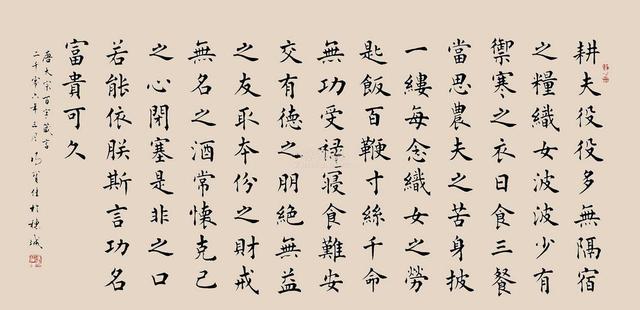 耕夫役役多無隔宿
之糧織女波波少有
禦寒之衣日食三餐
當思農夫之苦身披
一縷每念織女之勞
匙飯百鞭寸絲千命
無功受祿寢食難安
交有德之朋絕無益
之友取本份之財戒
無名之酒常懷克己
之心閉塞是非之口
若能依朕斯言功名
富貴可久
唐太宗百字箴言
二千零六年三月